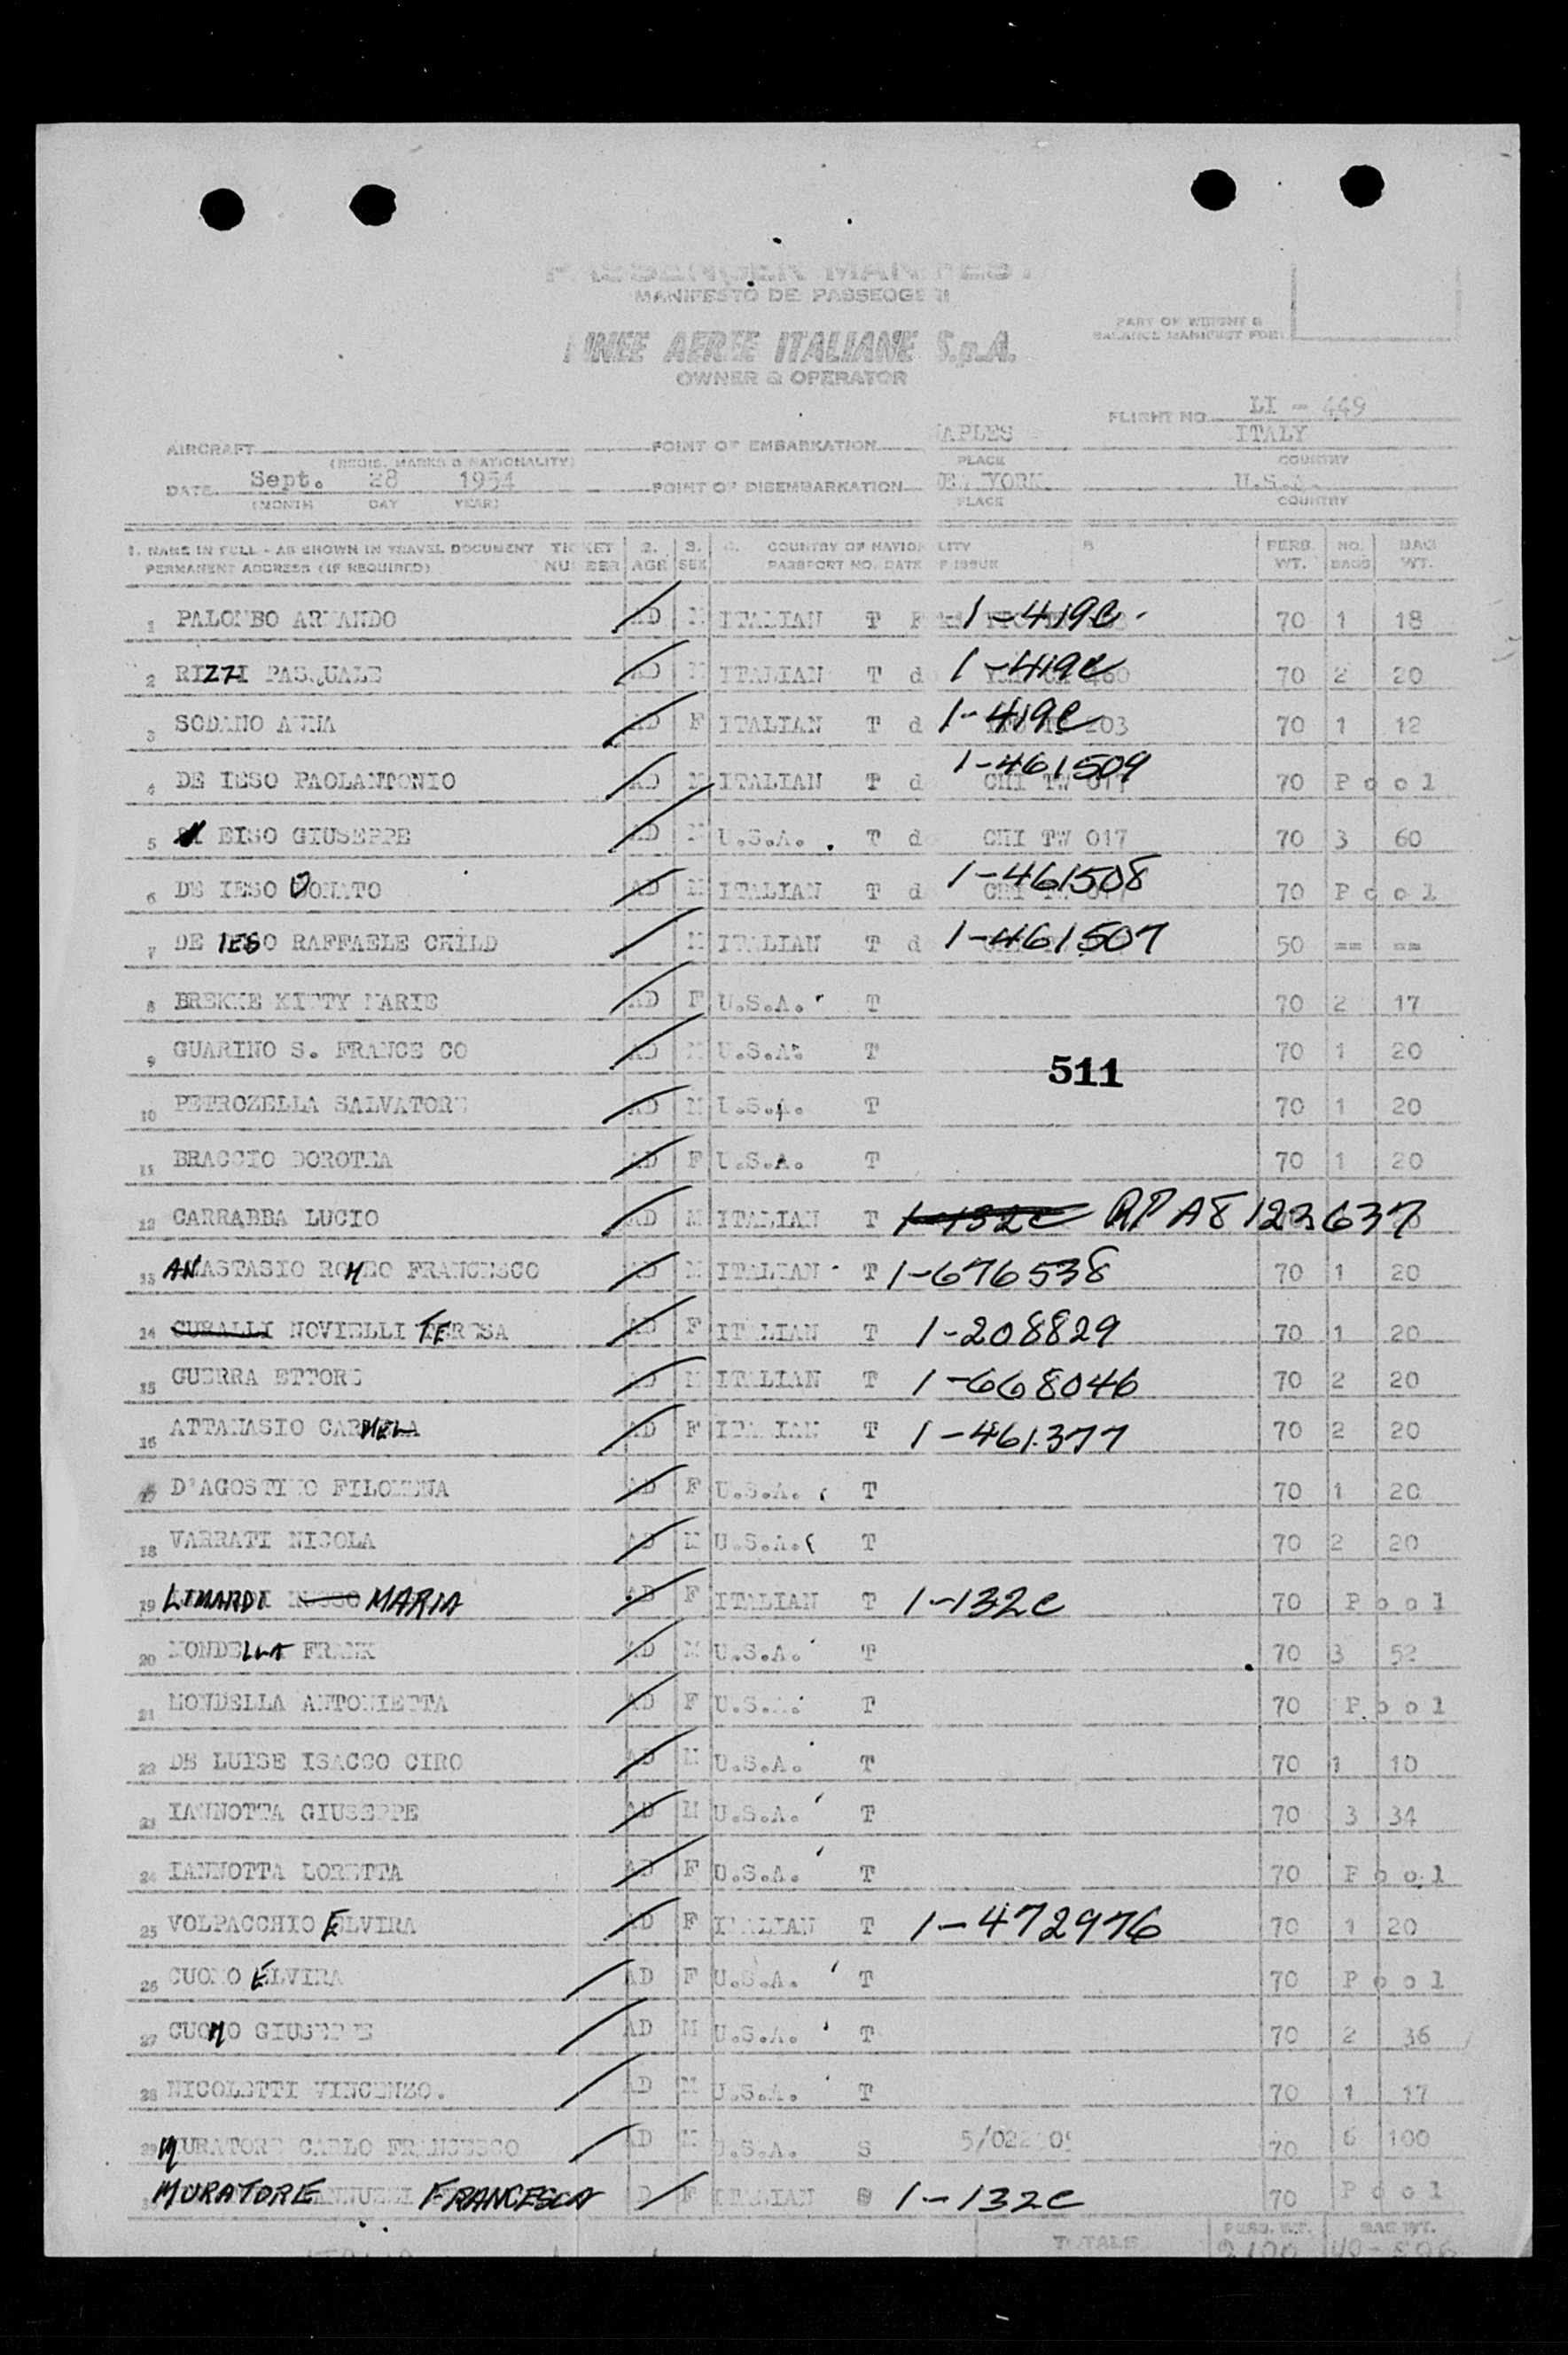 PASSENGER MANIFEST
MANIFESTO DE PASSEOGERI
LINEE AEREE ITALIANE S.p.A.
OWNER & OPERATOR
PART OF WEIGHT &
BALANCE MANIFEST FOR:
FLIGHT NO. LI - 449
AIRCRAFT POINT OF EMBARKATION NAPLES ITALY
(REGIS. MARKS & NATIONALITY) PLACE COUNTRY
DATE Sept. 28 1954 POINT OF DISEMBARKATION NEW YORK U.S.A.
(MONTH DAY YEAR) PLACE COUNTRY
1. NAME IN FULL - AS SHOWN IN TRAVEL DOCUMENT TICKET 2. 3. 4. COUNTRY OF NATIONALITY PERS. NO. BAG
PERMANENT ADDRESS (IF REQUIRED) NUMBER AGE SEX PASSPORT NO. DATE OF ISSUE WT. BAGS WT.
1 PALOMBO ARMANDO AD M ITALIAN T 1-419C 70 1 18
2 RIZZI PASQUALE AD M ITALIAN T d 1-419C 70 2 20
3 SODANO ANNA AD F ITALIAN T d 1-419C 203 70 1 12
4 DE IESO PAOLANTONIO AD M ITALIAN T d 1-461509 CHI TW 017 70 Pool
5 EISO GIUSEPPE AD M U.S.A. T d CHI TW 017 70 3 60
6 DE IESO DONATO AD M ITALIAN T d 1-461508 70 Pool
7 DE IESO RAFFAELE CHILD M ITALIAN T d 1-461507 50 == ==
8 BREKKE KITTY MARIE AD F U.S.A. T 70 2 17
9 GUARINO S. FRANCESCO AD M U.S.A. T 70 1 20
511
10 PETROZELLA SALVATORE AD M U.S.A. T 70 1 20
11 BRACCIO DOROTEA AD F U.S.A. T 70 1 20
12 CARRABBA LUCIO AD M ITALIAN T 1-132C RP A8 123 637
13 ANASTASIO ROMEO FRANCESCO AD M ITALIAN T 1-676538 70 1 20
14 CURALLI NOVIELLI TERESA AD F ITALIAN T 1-208829 70 1 20
15 GUERRA ETTORE AD M ITALIAN T 1-668046 70 2 20
16 ATTANASIO CARMELA AD F ITALIAN T 1-461377 70 2 20
17 D'AGOSTINO FILOMENA AD F U.S.A. T 70 1 20
18 VARRATI NICOLA AD M U.S.A. T 70 2 20
19 LIMARDI RUSSO MARIA AD F ITALIAN T 1-132C 70 Pool
20 MONDELLA FRANK AD M U.S.A. T 70 3 52
21 MONDELLA ANTONIETTA AD F U.S.A. T 70 Pool
22 DE LUISE ISACCO CIRO AD M U.S.A. T 70 1 10
23 IANNOTTA GIUSEPPE AD M U.S.A. T 70 3 34
24 IANNOTTA LORETTA AD F U.S.A. T 70 Pool
25 VOLPACCHIO ELVIRA AD F ITALIAN T 1-472976 70 1 20
26 CUOMO ELVIRA AD F U.S.A. T 70 Pool
27 CUOMO GIUSEPPE AD M U.S.A. T 70 2 36
28 NICOLETTI VINCENZO. AD M U.S.A. T 70 1 17
29 MURATORE CARLO FRANCESCO AD M U.S.A. S 70 6 100
MURATORE FRANCESCA AD F ITALIAN S 1-132C 70 Pool
TOTALS PERS. WT. BAG WT.